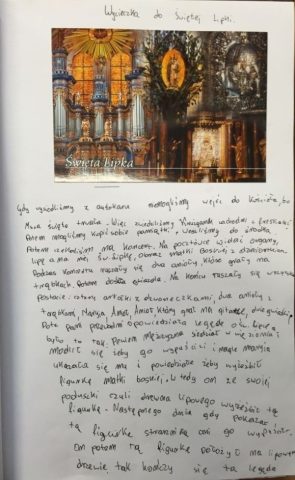 Wycieczka do Świętej Lipki.
Święta Lipka
Gdy wysiedliśmy z autokaru nie mogliśmy wejść do kościoła, bo
Msza święta trwała. Więc zwiedziliśmy
Potem mogliśmy kupić sobie pamiątki. Weszliśmy do środka.
Potem czekaliśmy na koncert. Na pocztówce widać organy,
Lipę a na niej św. Lipkę, obraz Matki Boskiej z dzieciątkiem.
Podczas koncertu ruszały się dwa anioły, które grały na
trąbkach. Potem doszła gwiazda. Na końcu ruszały się wszystkie
postacie: cztery aniołki z dzwoneczkami, dwa anioły z
trąbkami, Maryja, Anioł, Anioł który grał na gitarze,
Pote pan przewodni opowiedział legendę o św. Lipce
było to tak. Pewien mężczyzna siedział w więzieniu i
modlił się żeby go wypuścili i Maryja
ukazała się mu i powiedziała żeby wyrzeźbił
figurkę matki boskiej. Wtedy on ze swojej
poduszki czyli drewna lipowego wyrzeźbił tą
figurkę. Następnego dnia gdy pokazał
tą figurkę strażnikom oni go wypuścili.
On potem tą figurkę położył na lipowym
drzewie tak kończy się ta legenda